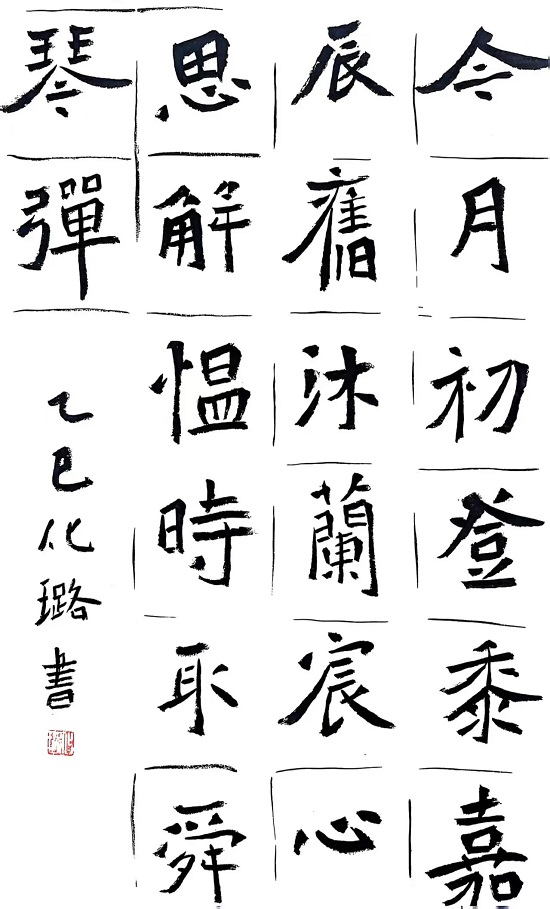 今月初登黍嘉
辰舊沐蘭宸心
思解愠時取舜
琴彈
乙巳化璐書